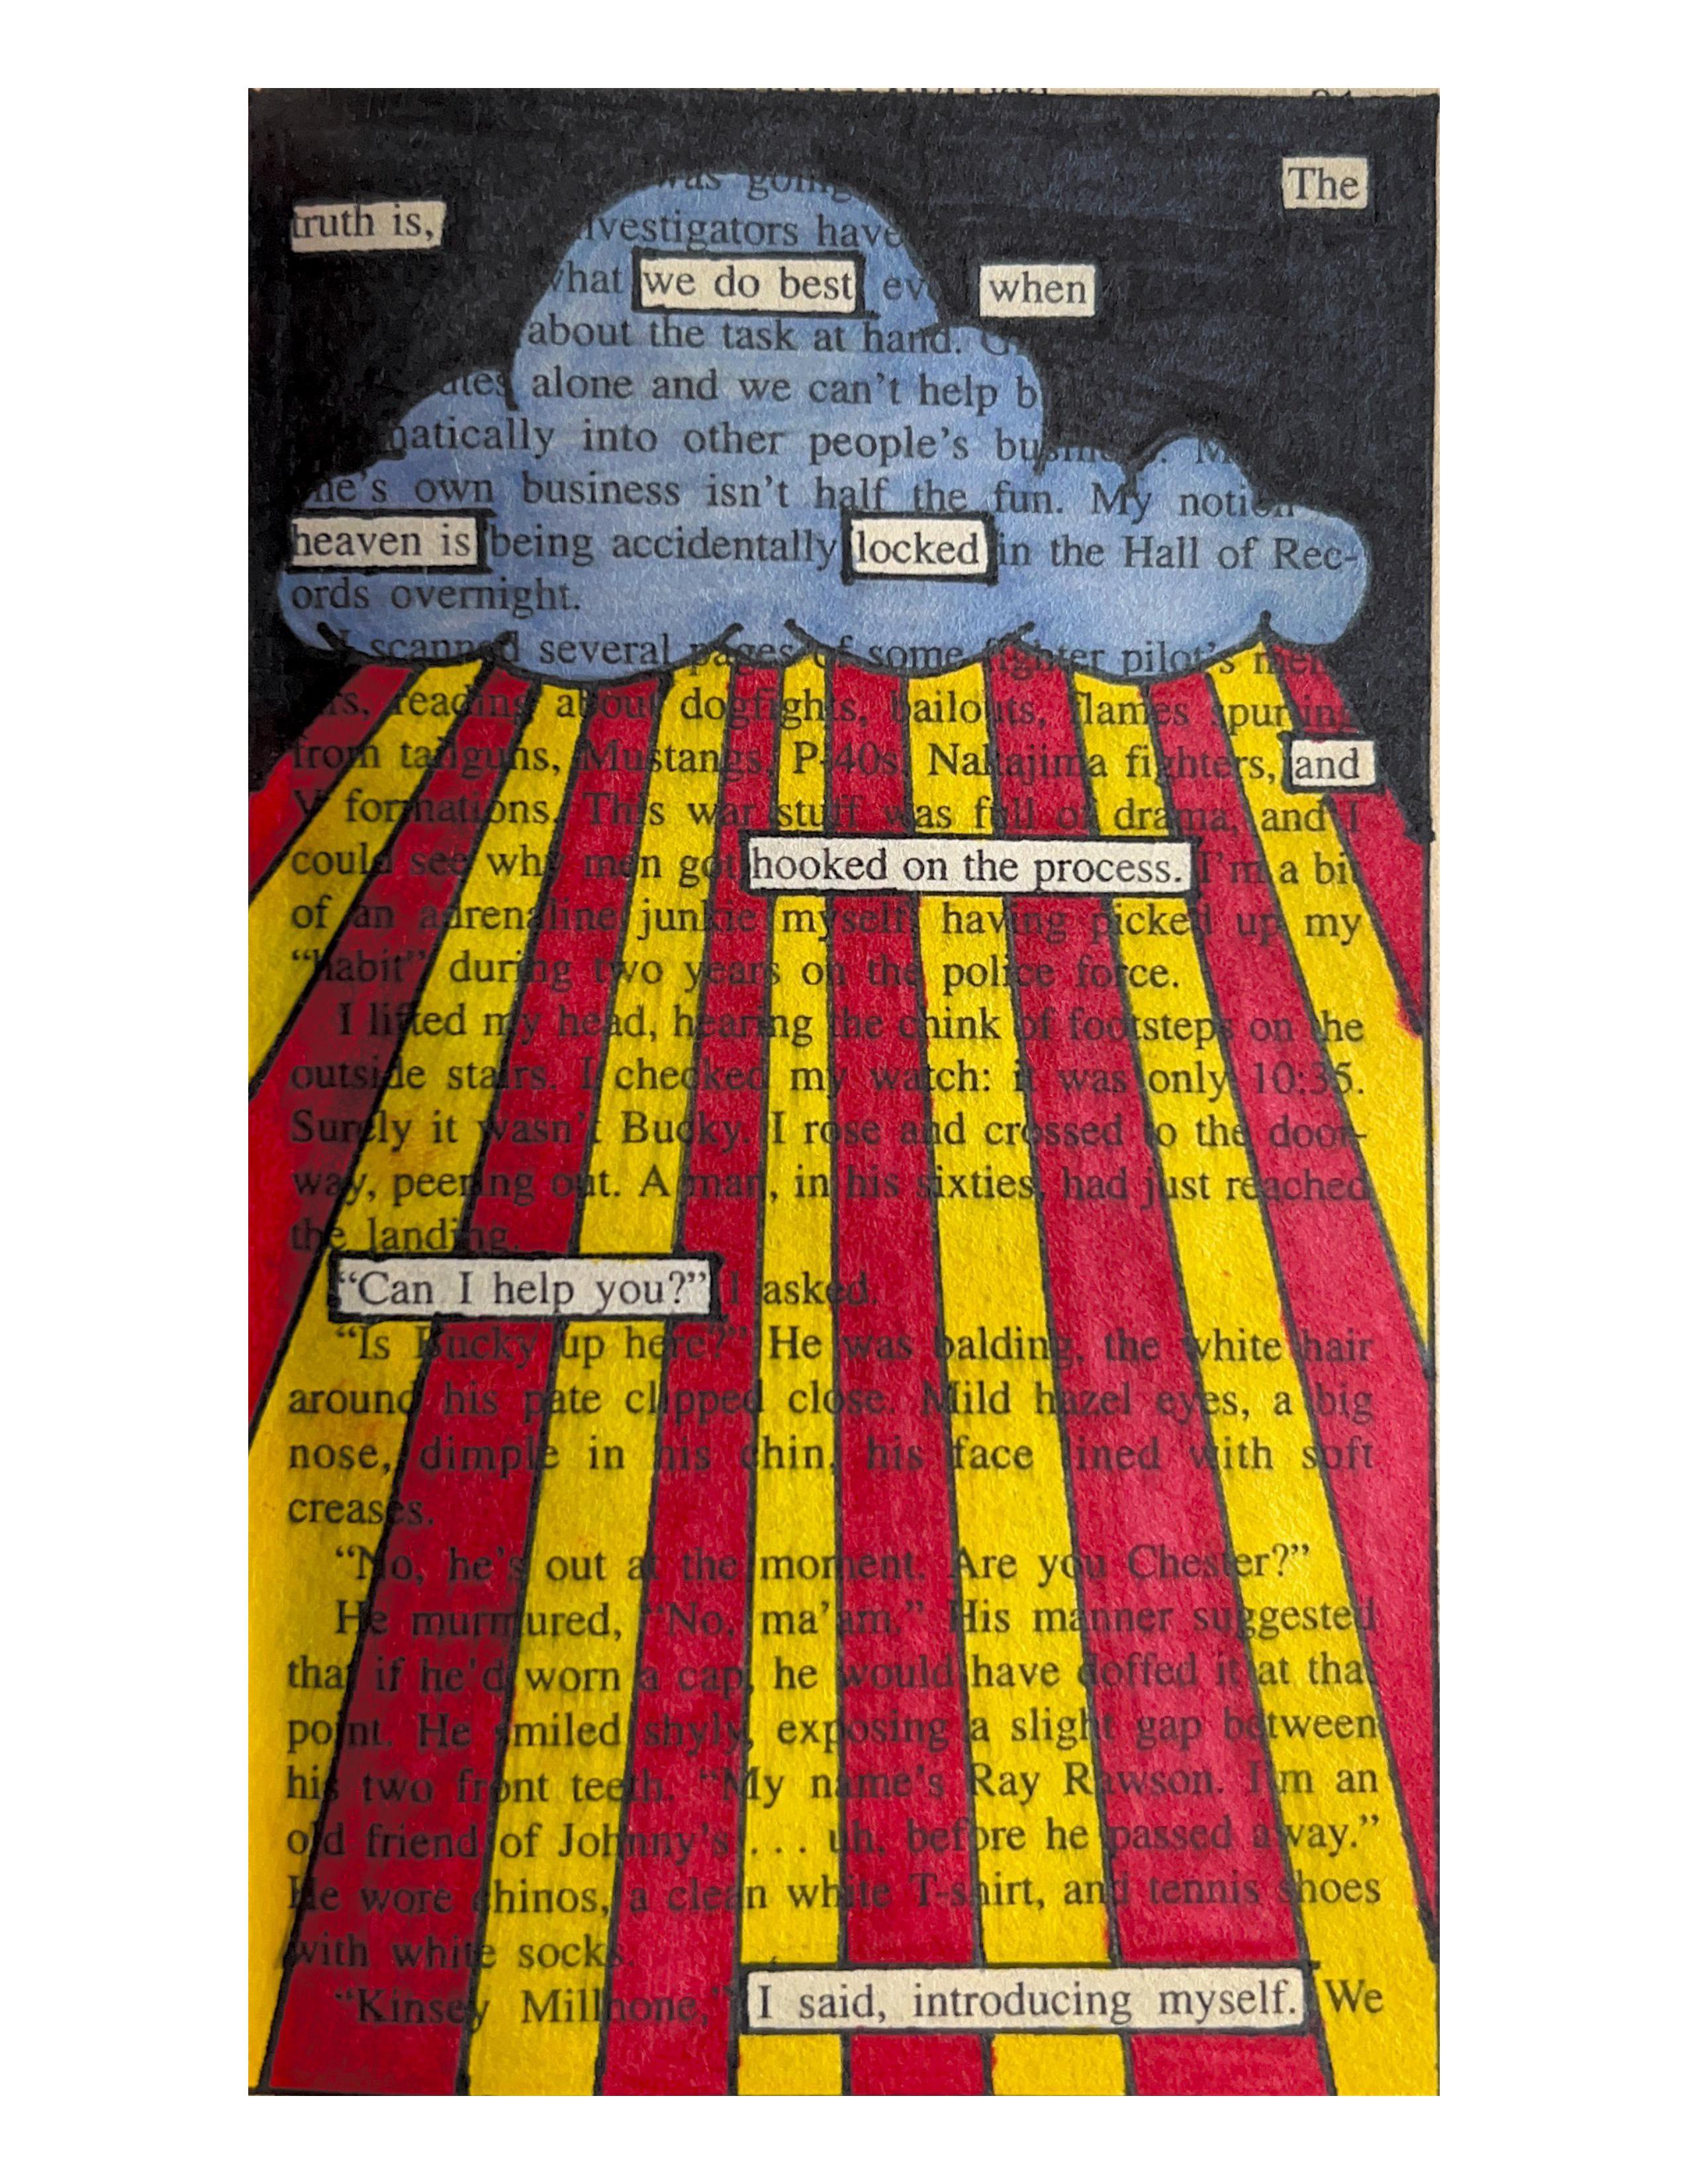 The
truth is,
was going
investigators have
what we do best when
about the task at hand.
alone and we can't help
into other people's
own business isn't half the fun. My notion
heaven is being accidentally locked in the Hall of Rec-
ords overnight.
I scanned several pages of some fighter pilot's
reading about dogfights, bailouts, flames spurting
from tailguns, Mustangs, P-40s, Nakajima fighters, and
V formations. This war stuff was full of drama, and I
could see why men got hooked on the process. I'm a bit
of an adrenaline junkie myself, having picked up my
“habit” during two years on the police force.
I lifted my head, hearing the chink of footsteps on the
outside stairs. I checked my watch: it was only 10:35.
Surely it wasn't Bucky. I rose and crossed to the door-
way, peering out. A man, in his sixties, had just reached
the landing.
“Can I help you?” I asked.
“Is Bucky up here?” He was balding, the white hair
around his pate clipped close. Mild hazel eyes, a big
nose, dimple in his chin, his face lined with soft
creases.
“No, he's out at the moment. Are you Chester?”
He murmured, “No, ma'am.” His manner suggested
that if he'd worn a cap, he would have doffed it at that
point. He smiled shyly, exposing a slight gap between
his two front teeth. “My name's Ray Rawson. I'm an
old friend of Johnny's . . . uh, before he passed away.”
He wore chinos, a clean white T-shirt, and tennis shoes
with white socks.
“Kinsey Millhone,” I said, introducing myself. We